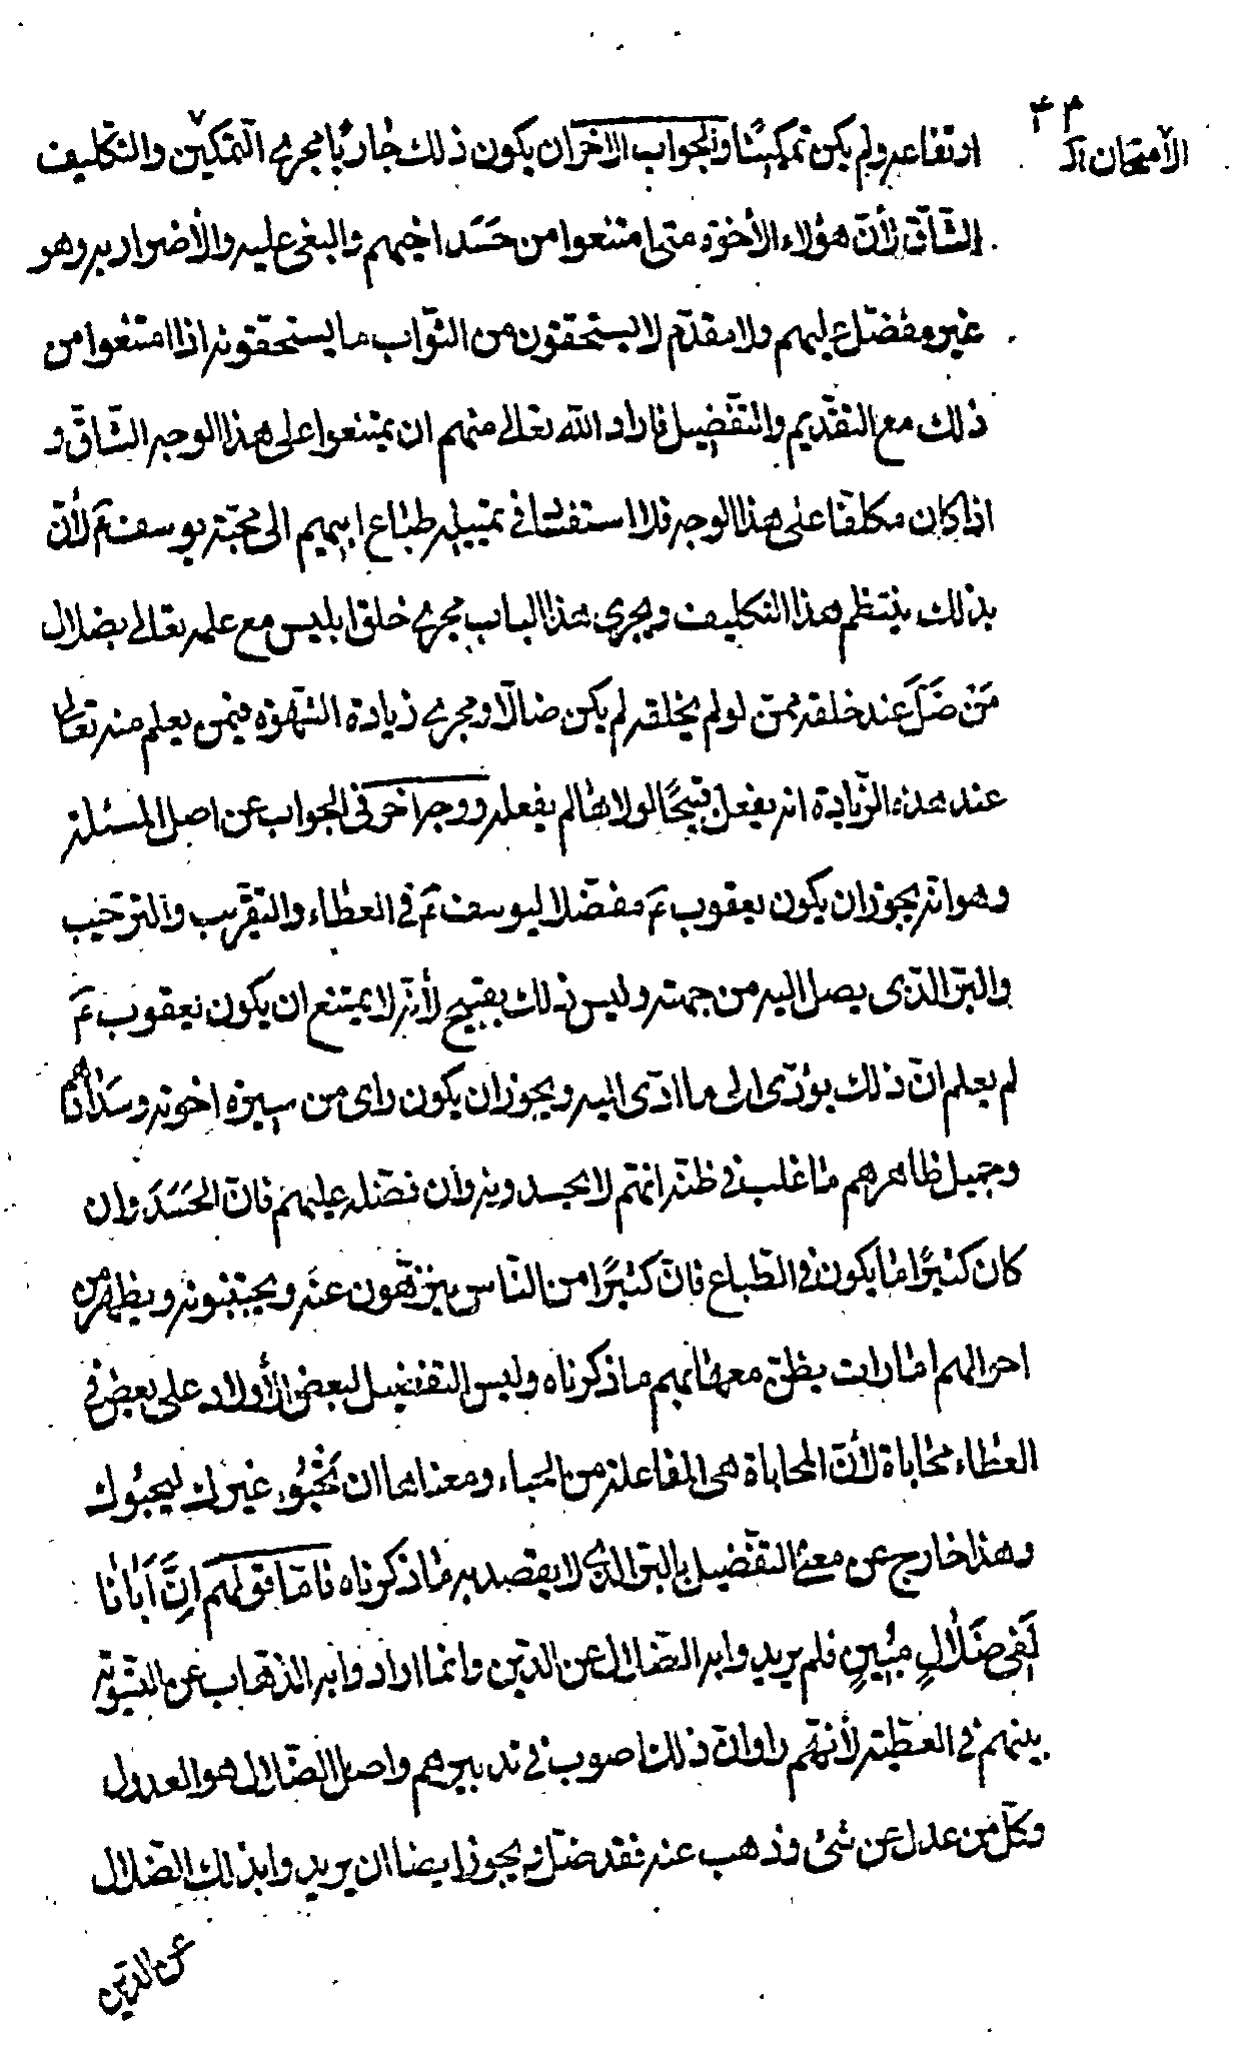 ارتفاعه ولم يكن تمكينًا والجواب الاخر ان يكون ذلك جاريًا مجرى التمكين والتكليف
الشاقّ لأنّ هؤلاء الأخوة متى امتنعوا من حَسَد اخيهم والبغى عليه والأضرار به وهو
غير مفضّل عليهم ولا مقدّم لا يستحقون من الثّواب ما يستحقونه اذا امتنعوا من
ذلك مع التقديم والتّفضيل فاراد الله تعالى منهم ان يمتنعوا على هذا الوجه الشاقّ و
اذا كان مكلفًا على هذا الوجه فلا استفسٰا في تمييله طباع ابيهم الى محبّة يوسف ع لأنّ
بذلك ينتظم هذا التكليف ويجرى هذا الباب مجرى خلق ابليس مع علمه تعالى بضلال
مَنْ ضَلَّ عند خلقه ممّن لو لم يخلقه لم يكن ضالّا ومجرى زيادة الشهوة فيمن يعلم منه تعالى
عند هذه الزّيادة انه يفعل قبيحًا لولاها لم يفعله ووجه اخر في الجواب عن اصل المسئلة
وهو انّه يجوز ان يكون يعقوب ع مفضّلا ليوسف ع في العطاء والتقريب والترحيب
والبرّ الذى يصل اليه من جهته وليس ذلك بقبيح لأنّه لا يمتنع ان يكون يعقوب ع
لم يعلم انّ ذلك يؤدّى الى ما ادّى اليه ويجوز ان يكون راى من سيرة اخوته وسدادهم
وجميل ظاهرهم ما غلب في ظنّه انهم لا يحسدونه وان فضّله عليهم فانّ الحَسَدَ وان
كان كثيرًا ما يكون في الطّباع فانّ كثيرًا من النّاس يتنزّهون عنه ويجتنبونه ويظهر من
احوالهم امارات يظنّ معها بهم ما ذكرناه وليس التفضيل لبعض الأولاد على بعض في
العطاء محاباة لأنّ المحاباة هى المفاعلة من الحباء ومعناها ان تَحْبُوَ غيرك ليحبوك
وهذا خارج عن معنى التفضيل بالبرّ الذى لا يقصد به ما ذكرناه فامّا قولهم اِنَّ اَبانا
لَفِى ضَلٰالٍ مُبٖينٍ فلم يريدوا به الضّلال عن الدّين وانما ارادوا به الذّهاب عن التّسوية
بينهم في العطيّة لأنّهم راوا انّ ذلك اصوب في تدبيرهم واصل الضّلال هو العدول
وكلّ من عدل عن شئ وذهب عنه فقد ضلّ ويجوز ايضا ان يريدوا بذلك الضّلال
عن الدّين